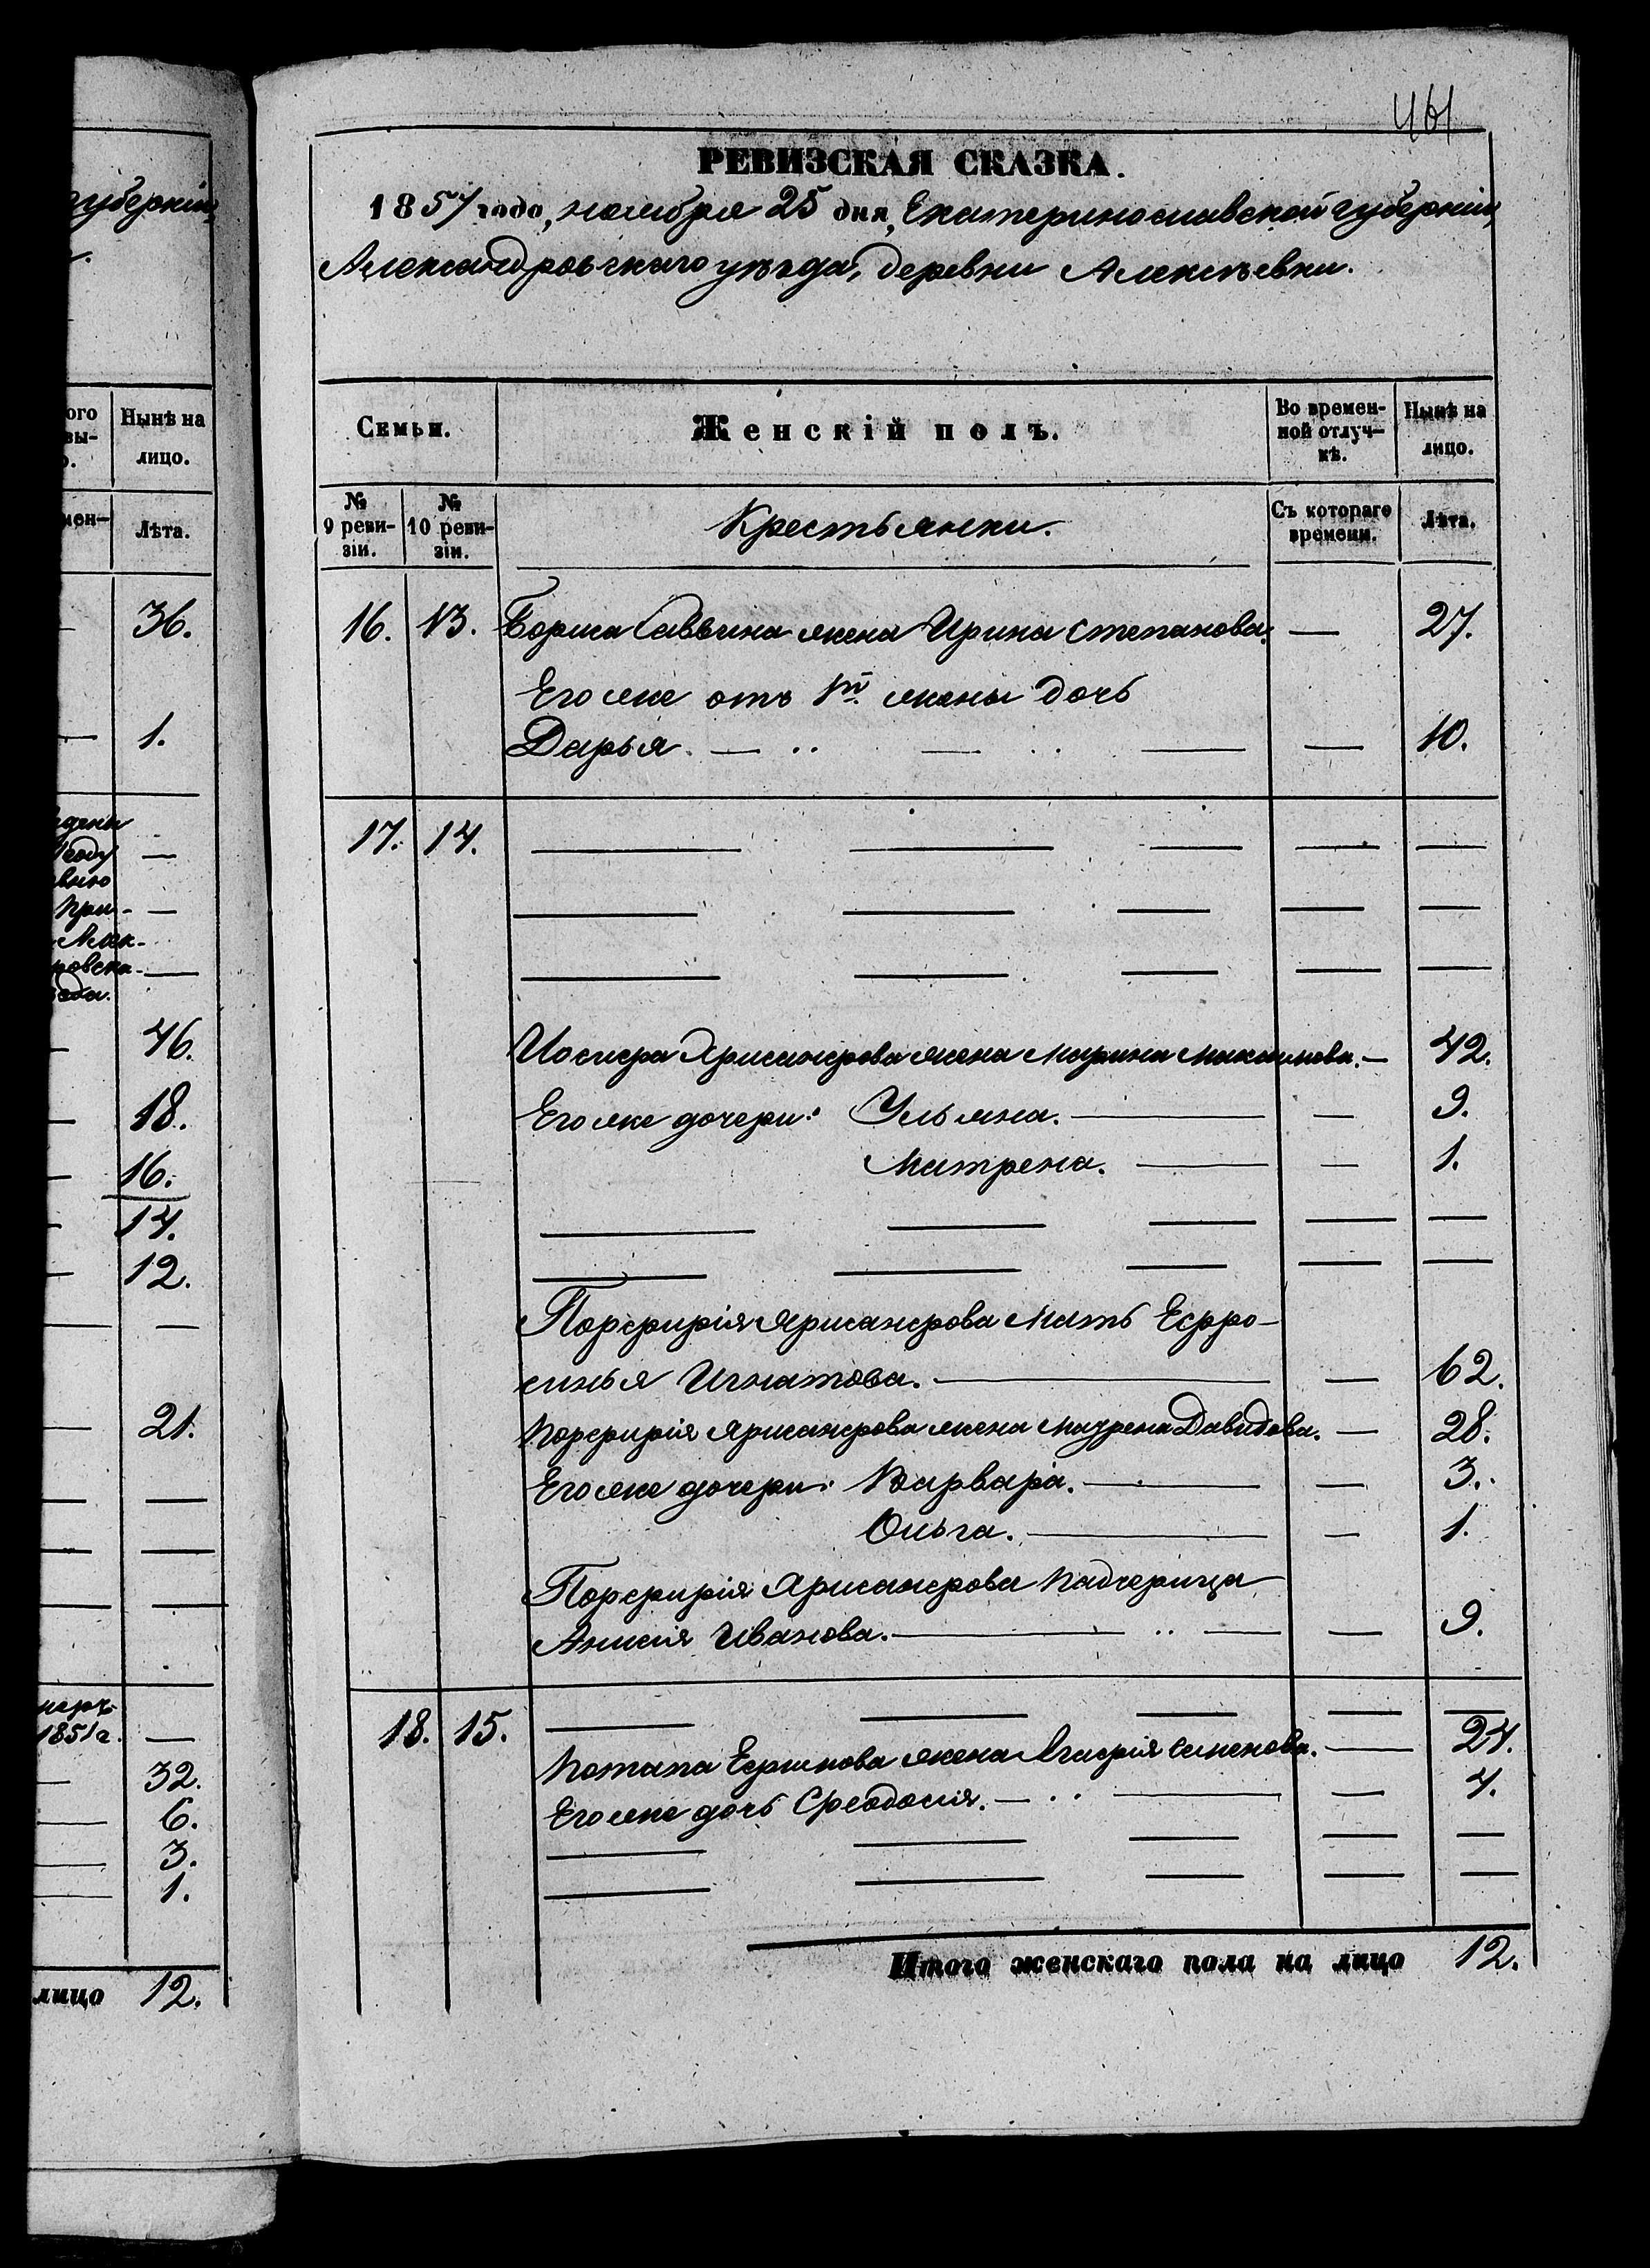 461
РЕВИЗСКАЯ СКАЗКА.
1857 года, ноября 25 дня, Екатеринославской губерніи,
Александровскаго уѣзда, деревни Алексѣевки.
Семьи.
Женскій полъ.
Во времен-
ной отлуч-
кѣ.
Нынѣ на
лицо.
№
9 реви-
зіи.
№
10 реви-
зіи.
Крестьянки.
Съ котораго
времени.
Лѣта.
16. 13. Бориса Саввина жена Ирина Степанова. — 27.
Его же отъ 1й жены дочь
Дарья. — 10.
17. 14.
Иосифа Ярисанфова жена Марина Максимова. — 42.
Его же дочери: Ульяна. — 9.
Матрена. — 1.
Порфирія Ярисанфова мать Ефро-
синья Игнатова. — 62.
Порфирія Ярисанфова жена Мавра Давидова. — 28.
Его же дочери: Варвара. — 3.
Ольга. — 1.
Порфирія Ярисанфова падчерица
Анисія Иванова. — 9.
18. 15.
Потапа Ефимова жена Агафія Семенова. — 24.
Его же дочь Феодосія. — 4.
Итого женскаго пола на лицо 12.
губерніи
ого
вы-
о.
Нынѣ на
лицо.
мен-
Лѣта.
36.
1.
46.
18.
16.
14.
12.
21.
1851 г.
32.
6.
3.
1.
лицо 12.